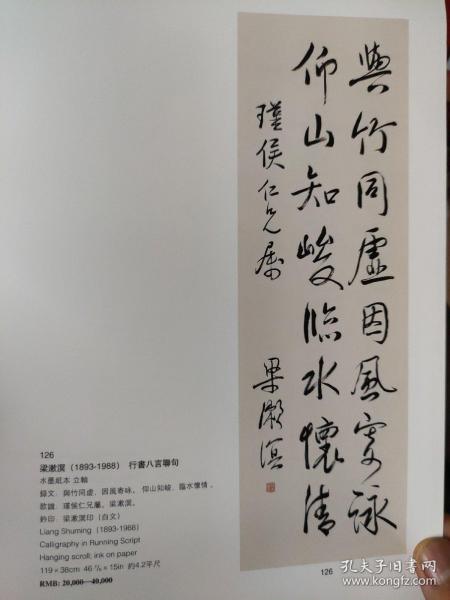 與竹同虛因風寄詠
仰山知峻臨水懷清
瑾侯仁兄属
梁漱溟
126
梁漱溟（1893-1988） 行書八言聯句
水墨紙本 立軸
錄文：與竹同虛，因風寄咏。仰山知峻，臨水懷情。
款識：瑾侯仁兄屬，梁漱溟。
鈐印：梁漱溟印（白文）
Liang Shuming (1893-1988)
Calligraphy in Running Script
Hanging scroll; ink on paper
119×38cm 46 7/8×15in 約4.2平尺
RMB: 20,000—40,000
126
孔夫子旧书网